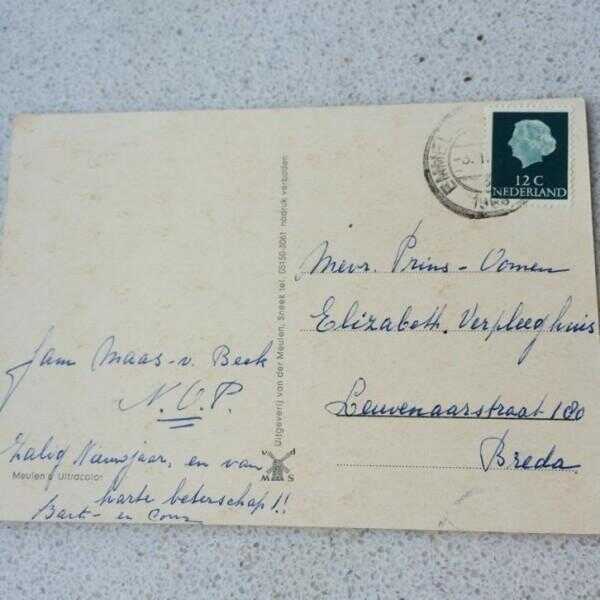 Fam Maas-v. Beek
N.O.P.
Zalig Nieuwjaar, en van
harte beterschap!!
Bart- en
Meulen's Ultracolor
v d
M S
Uitgeverij van der Meulen, Sneek tel. 05150-3061 nadruk verboden
EMMEL
12 C
NEDERLAND
Mevr. Prins-Oomen
Elizabeth. Verpleeghuis
Leuvenaarstraat 180
Breda.